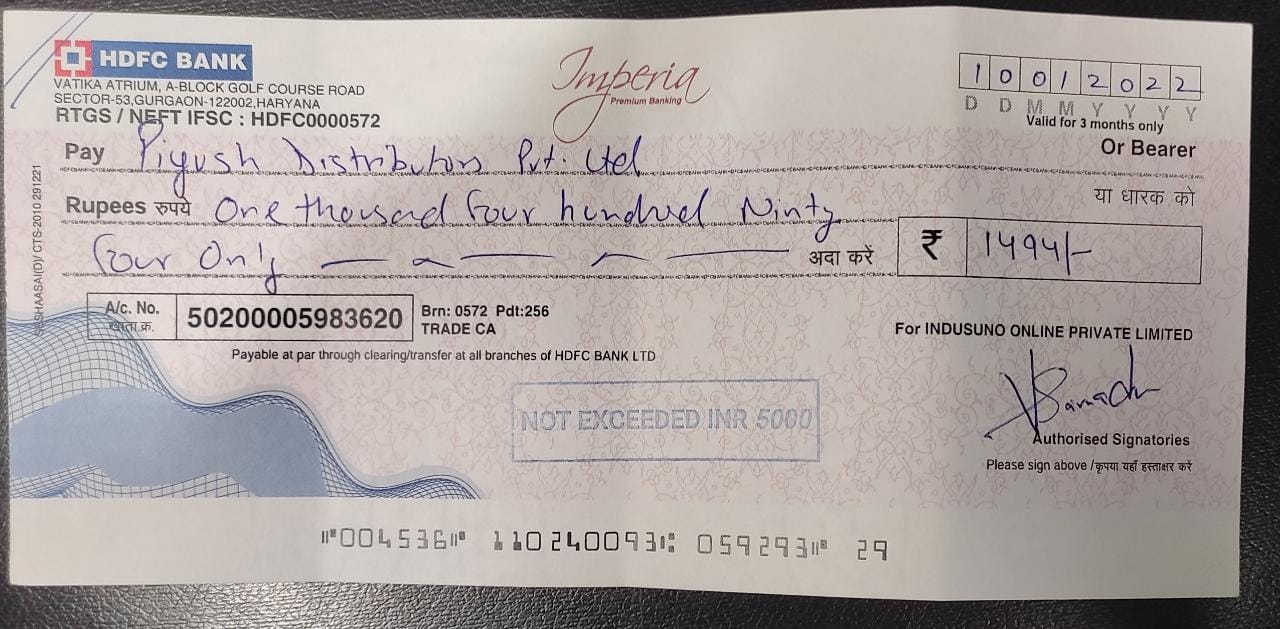 HDFC BANK
VATIKA ATRIUM, A-BLOCK GOLF COURSE ROAD
SECTOR-53,GURGAON-122002,HARYANA
RTGS / NEFT IFSC : HDFC0000572
Imperia
Premium Banking
1 0 0 1 2 0 2 2
D D M M Y Y Y Y
Valid for 3 months only
Pay Piyush Distributors Pvt. Ltd
Or Bearer
या धारक को
Rupees रुपये One thousad four hundred Ninty
four Only
अदा करें
₹ 1494/-
A/c. No.
खाता.क्र.
50200005983620
Brn: 0572 Pdt:256
TRADE CA
Payable at par through clearing/transfer at all branches of HDFC BANK LTD
For INDUSUNO ONLINE PRIVATE LIMITED
NOT EXCEEDED INR 5000
Authorised Signatories
Please sign above /कृपया यहाँ हस्ताक्षर करें
CTS-2010 291221
⑈004536⑈ 110240093⑆ 059293⑈ 29